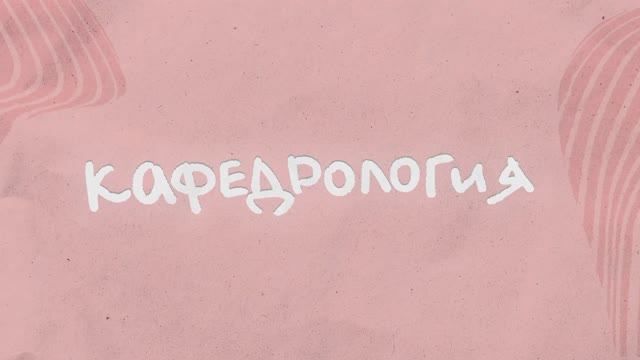 КАФЕДРОЛОГИЯ